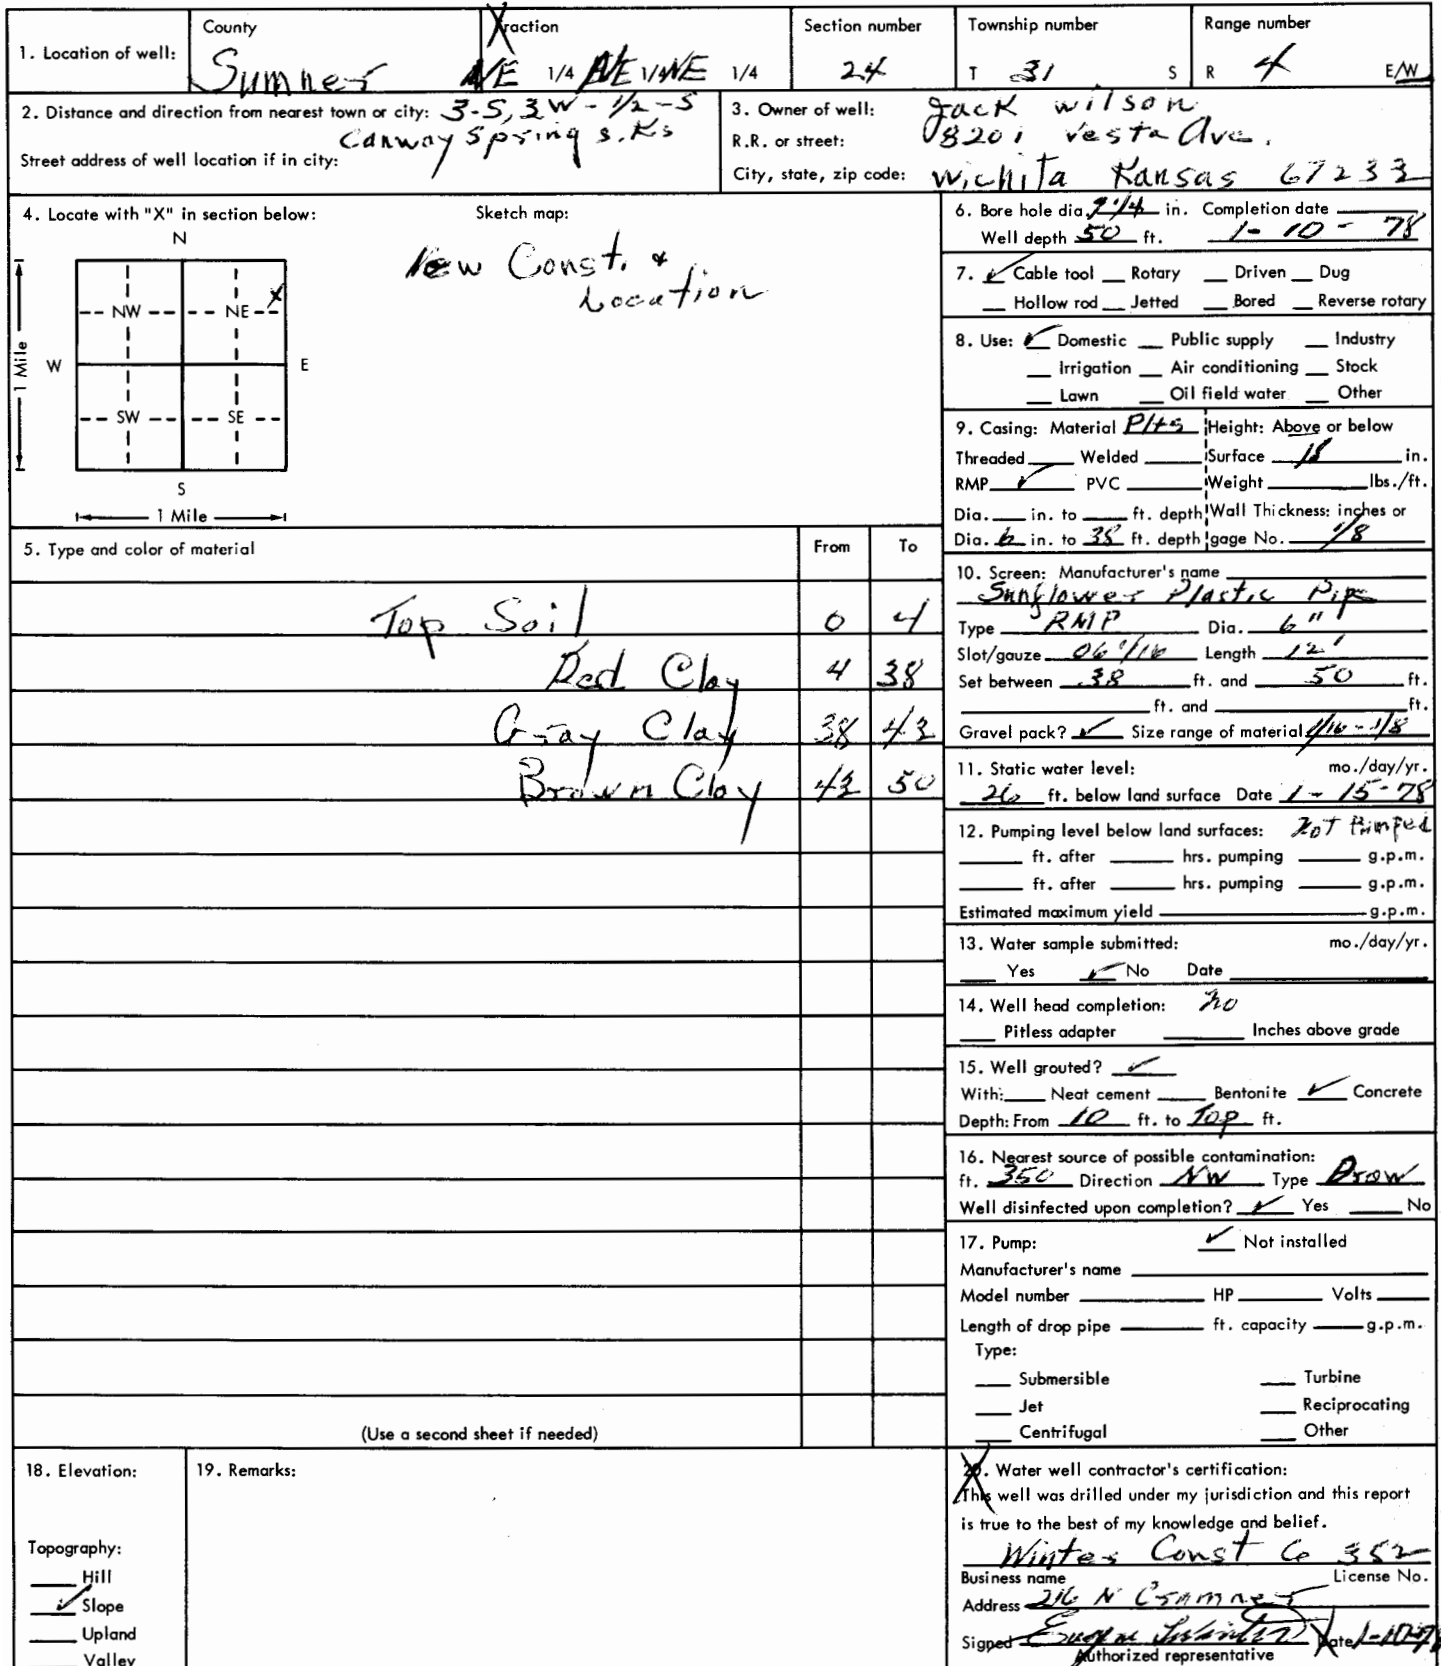 County
Fraction
Section number
Township number
Range number
1. Location of well:
Sumner NE 1/4 NE 1/4 NE 1/4 24 T 31 S R 4 E/W
2. Distance and direction from nearest town or city: 3-S, 3W - 1/2 - S
Conway Springs. Ks
Street address of well location if in city:
3. Owner of well: Jack Wilson
R.R. or street: 8201 Vesta Ave.
City, state, zip code: Wichita Kansas 67233
4. Locate with "X" in section below:
Sketch map:
N
New Const. &
Location
X
NW NE
W E
1 Mile
SW SE
S
1 Mile
5. Type and color of material From To
Top Soil 0 4
Red Clay 4 38
Gray Clay 38 43
Brown Clay 43 50
(Use a second sheet if needed)
6. Bore hole dia. 9 1/4 in. Completion date
Well depth 50 ft. 1-10-78
7. ✓ Cable tool Rotary Driven Dug
Hollow rod Jetted Bored Reverse rotary
8. Use: ✓ Domestic Public supply Industry
Irrigation Air conditioning Stock
Lawn Oil field water Other
9. Casing: Material Plts Height: Above or below
Threaded Welded Surface 18 in.
RMP ✓ PVC Weight lbs./ft.
Dia. in. to ft. depth Wall Thickness: inches or
Dia. 6 in. to 38 ft. depth gage No. 1/8
10. Screen: Manufacturer's name
Sunflower Plastic Pipe
Type RMP Dia. 6"
Slot/gauze 06 1/16 Length 12'
Set between 38 ft. and 50 ft.
ft. and ft.
Gravel pack? ✓ Size range of material 1/16 - 1/8
11. Static water level: mo./day/yr.
26 ft. below land surface Date 1-15-78
12. Pumping level below land surfaces: Not Pumped
ft. after hrs. pumping g.p.m.
ft. after hrs. pumping g.p.m.
Estimated maximum yield g.p.m.
13. Water sample submitted: mo./day/yr.
Yes ✓ No Date
14. Well head completion: no
Pitless adapter Inches above grade
15. Well grouted? ✓
With: Neat cement Bentonite ✓ Concrete
Depth: From 10 ft. to Top ft.
16. Nearest source of possible contamination:
ft. 350 Direction NW Type Draw
Well disinfected upon completion? ✓ Yes No
17. Pump: ✓ Not installed
Manufacturer's name
Model number HP Volts
Length of drop pipe ft. capacity g.p.m.
Type:
Submersible Turbine
Jet Reciprocating
Centrifugal Other
18. Elevation:
Topography:
Hill
✓ Slope
Upland
Valley
19. Remarks:
20. Water well contractor's certification:
This well was drilled under my jurisdiction and this report
is true to the best of my knowledge and belief.
Winter Const Co 352
Business name License No.
Address 216 N Cramner
Signed Eugene Winter Date 1-10-78
Authorized representative